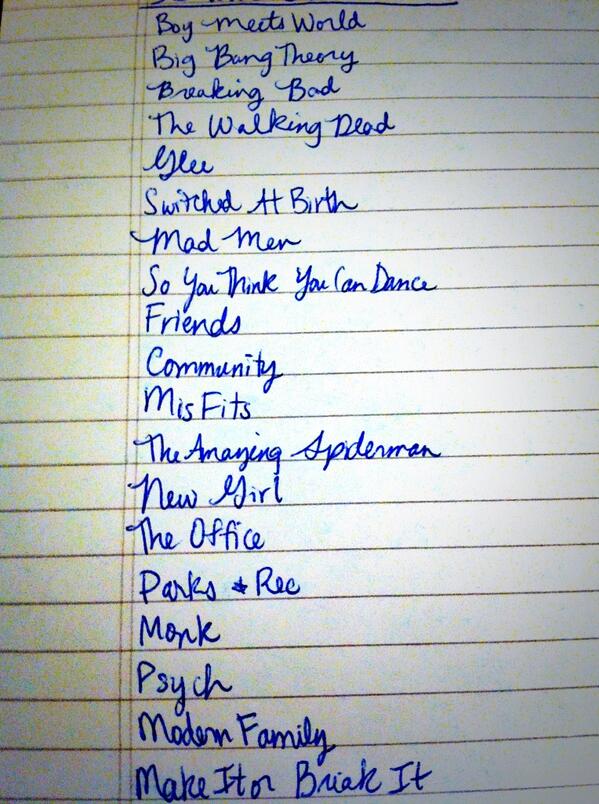 Boy Meets World
Big Bang Theory
Breaking Bad
The Walking Dead
Glee
Switched At Birth
Mad Men
So You Think You Can Dance
Friends
Community
MisFits
The Amazing Spiderman
New Girl
The Office
Parks & Rec
Monk
Psych
Modern Family
Make It or Break It